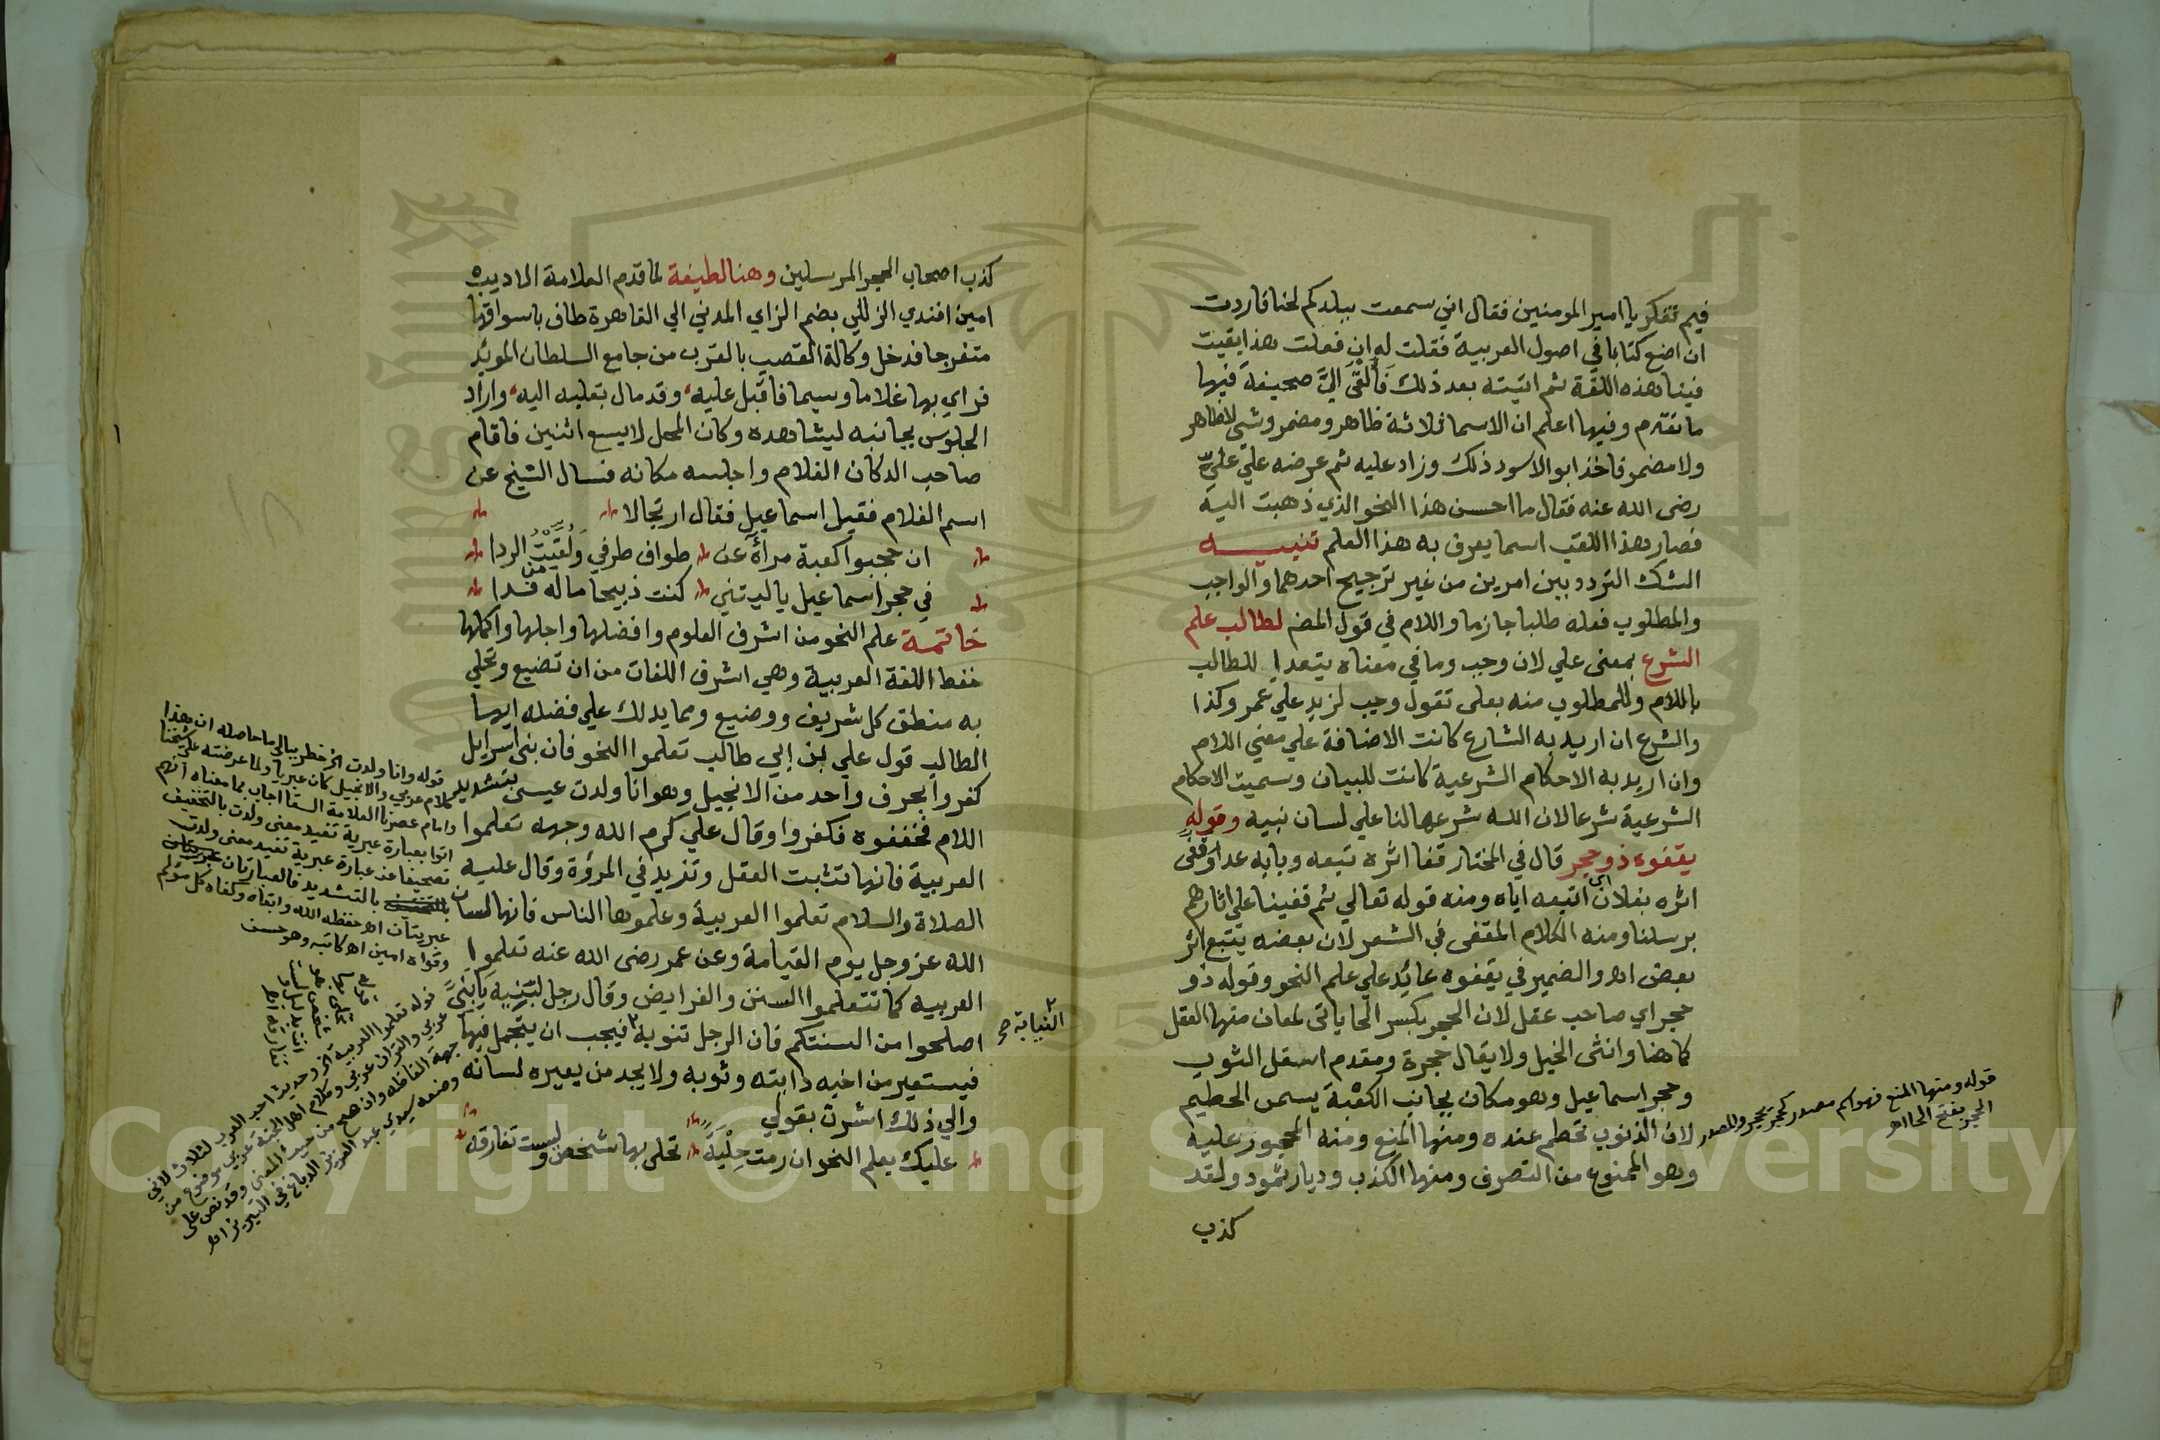 فيم تفكر يا امير المومنين فقال اني سمعت ببلدكم لحنا فاردت
ان اضع كتابا في اصول العربية فقلت له ان فعلت هذا بقيت
فينا هذه اللغة ثم اتيته بعد ذلك فَأَلْقَى اليَّ صحيفة فيها
ما تقدم وفيها اعلم ان الاسما ثلاثة ظاهر ومضمر وشي لا ظاهر
ولا مضمر فاخذ ابو الاسود ذلك وزاد عليه ثم عرضه علي علي
رضى الله عنه فقال ما احسن هذا النحو الذي ذهبت اليه
فصار هذا اللقب اسما يعرف به هذا العلم تنبيه
الشك التردد بين امرين من غير ترجيح احدهما والواجب
والمطلوب فعله طلبا جازما واللام في قول المص لطالب علم
الشرع بمعنى علي لان وجب وما في معناه يتعدا للطالب
باللام وللمطلوب منه بعلى تقول وجب لزيد علي عمر وكذا
والشرع ان اريد به الشارع كانت الاضافة علي معني اللام
وان اريد به الاحكام الشرعية كانت للبيان وسميت الاحكام
الشرعية شرعا لان الله شرعها لنا علي لسان نبيه وقوله
يقفوه ذو حجر قال في المختار قفا اثره تبعه وبابه عدا وقفى
اثره بفلان اي اتبعه اياه ومنه قوله تعالي ثم قفينا علي اثارهم
برسلنا ومنه الكلام المقفى في الشعر لان بعضه يتبع اثر
بعض اه والضمير في يقفوه عائد علي علم النحو وقوله ذو
حجر اي صاحب عقل لان الحجر بكسر الحا ياتى لمعان منها العقل
كما هنا وانثى الخيل ولا يقال حجرة ومقدم اسفل الثوب
وحجر اسماعيل وهو مكان بجانب الكعبة يسمى الحطيم
لان الذنوب تحطم عنده ومنها المنع ومنه المحجور عليه
وهو الممنوع من التصرف ومنها الكذب وديار ثمود ولقد
كذب
قوله ومنها المنع فهو اكم مصدر كحجر يحجر والمصدر
الحجر بفتح الحا اهـ
كذب اصحاب الحجر المرسلين وهنا لطيفة لما قدم العلامة الاديب
امين افندي الزللي بضم الزاي المدني الي القاهرة طاف باسواقها
متفرجا فدخل وكالة القصب بالقرب من جامع السلطان المويد
فراي بها غلاما وسيما فاقبل عليه وقد مال بقلبه اليه واراد
الجلوس بجانبه ليشاهده وكان المحل لا يسع اثنين فاقام
صاحب الدكان الغلام واجلسه مكانه فسال الشيخ عن
اسم الغلام فقيل اسماعيل فقال ارتجالا
ان حجبوا كعبة مرأة عن طواف طرفي وَلُقِّيتُ الردا
في حجر اسماعيل يا ليتني كنت ذبيحا ماله من فدا
خاتمة علم النحو من اشرف العلوم وافضلها واجلها واكملها
حفظ اللغة العربية وهي اشرف اللغات من ان تضيع وتحلي
به منطق كل شريف ووضيع ومما يدلك علي فضله ايها
الطالب قول علي بن ابي طالب تعلموا النحو فان بنى اسرايل
كفروا بحرف واحد من الانجيل وهو انا ولدت عيسى بتشديد
اللام فخففوه فكفروا وقال علي كرم الله وجهه تعلموا
العربية فانها تثبت العقل وتزيد في المروة وقال عليه
الصلاة والسلام تعلموا العربية وعلموها الناس فانها لسان
الله عز وجل يوم القيامة وعن عمر رضى الله عنه تعلموا
العربيه كما تتعلموا السنن والفرايض وقال رجل لبنيه يَابَنِيَّ
اصلحوا من السنتكم فان الرجل تنوبه ٢ فيجب ان يتجمل فيها
فيستعير من اخيه دابته وثوبه ولا يجد من يعيره لسانه
والي ذلك اشرت بقولي
عليك بعلم النحو ان رمت حِلْيَةً تحلى بها شخص وليست تفارقه
٢ النيابة صح
قوله وانا ولدت الخ خطر ببالي ما حاصله ان هذا
كلام عربي والانجيل كان عبريا ولما عرضته علي شيخنا
وامام عصرنا العلامة السقا اجاب بما معناه انهم
اتوا بعبارة عبرية تفيد معنى ولدت بالتخفيف
تصحيفا عن عبارة عبرية تفيد معنى ولدت
بالتشديد فالعبارتان
عبريتان اه حفظه الله وابقاه وكفاه كل مولم
وقواه امين اه كاتبه وهو حسن
قوله تعلموا العربية اخر وحديث احب العرب لثلاث لاني
عربي والقران عربي وكلام اهل الجنة عربي موضوع من
جهة الفاظه وان صح من حيث المعنى وقد نص على
وضعه سيدي عبد العزيز الدباغ في التبريز اهـ